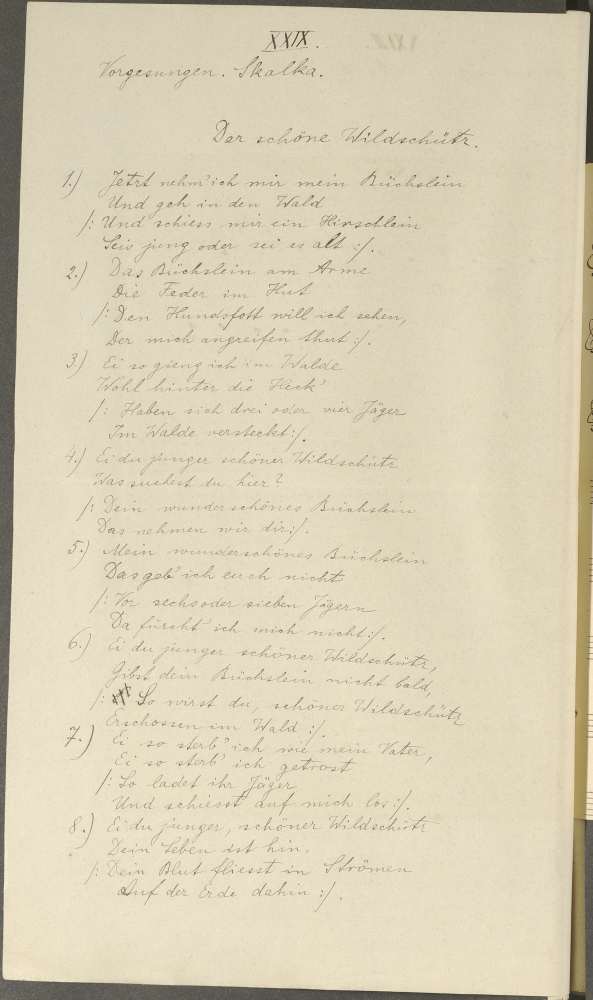 XXIX.
Vorgesungen. Skalka.
Der schöne Wildschütz.
1.) Jetzt nehm' ich mir mein Büchslein
Und geh in den Wald
/: Und schiess mir ein Hirschlein
Seis jung oder sei es alt :/.
2.) Das Büchslein am Arme
Die Feder im Hut
/: Den Hundsfott will ich sehen,
Der mich angreifen thut :/.
3.) Ei so gieng ich im Walde
Wohl hinter die Heck'
/: Haben sich drei oder vier Jäger
Im Walde versteckt :/.
4.) Ei du junger schöner Wildschütz
Was suchest du hier?
/: Dein wunderschönes Büchslein
Das nehmen wir dir :/.
5.) Mein wunderschönes Büchslein
Das geb' ich euch nicht
/: Vor sechs oder sieben Jägern
Da fürcht' ich mich nicht :/.
6.) Ei du junger schöner Wildschütz,
Gibst dein Büchslein nicht bald,
/: So wirst du, schöner Wildschütz
Erschossen im Wald :/.
7.) Ei so sterb' ich wie mein Vater,
Ei so sterb' ich getrost
/: So ladet ihr Jäger
Und schiesst auf mich los :/.
8.) Ei du junger, schöner Wildschütz
Dein Leben ist hin.
/: Dein Blut fliesst in Strömen
Auf der Erde dahin :/.